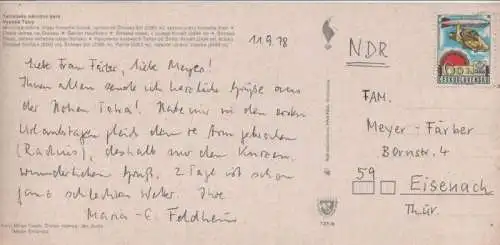 Tatranský národný park
Vysoké Tatry
11.9.78
Liebe Frau Färber, liebe Meyer!
Ihnen allen sende ich herzliche Grüße aus
der Hohen Tatra! Habe mir in den ersten
Urlaubstagen gleich den re Arm gebrochen
(Radius), deshalb nur den kurzen,
wunderlichen Gruß. 2 Tage ist schon
ganz schlechtes Wetter. Ihre
Maria-E. Feldheim
NDR
FAM.
Meyer-Färber
Bornstr. 4
59 Eisenach
Thür.
ČESKOSLOVENSKO